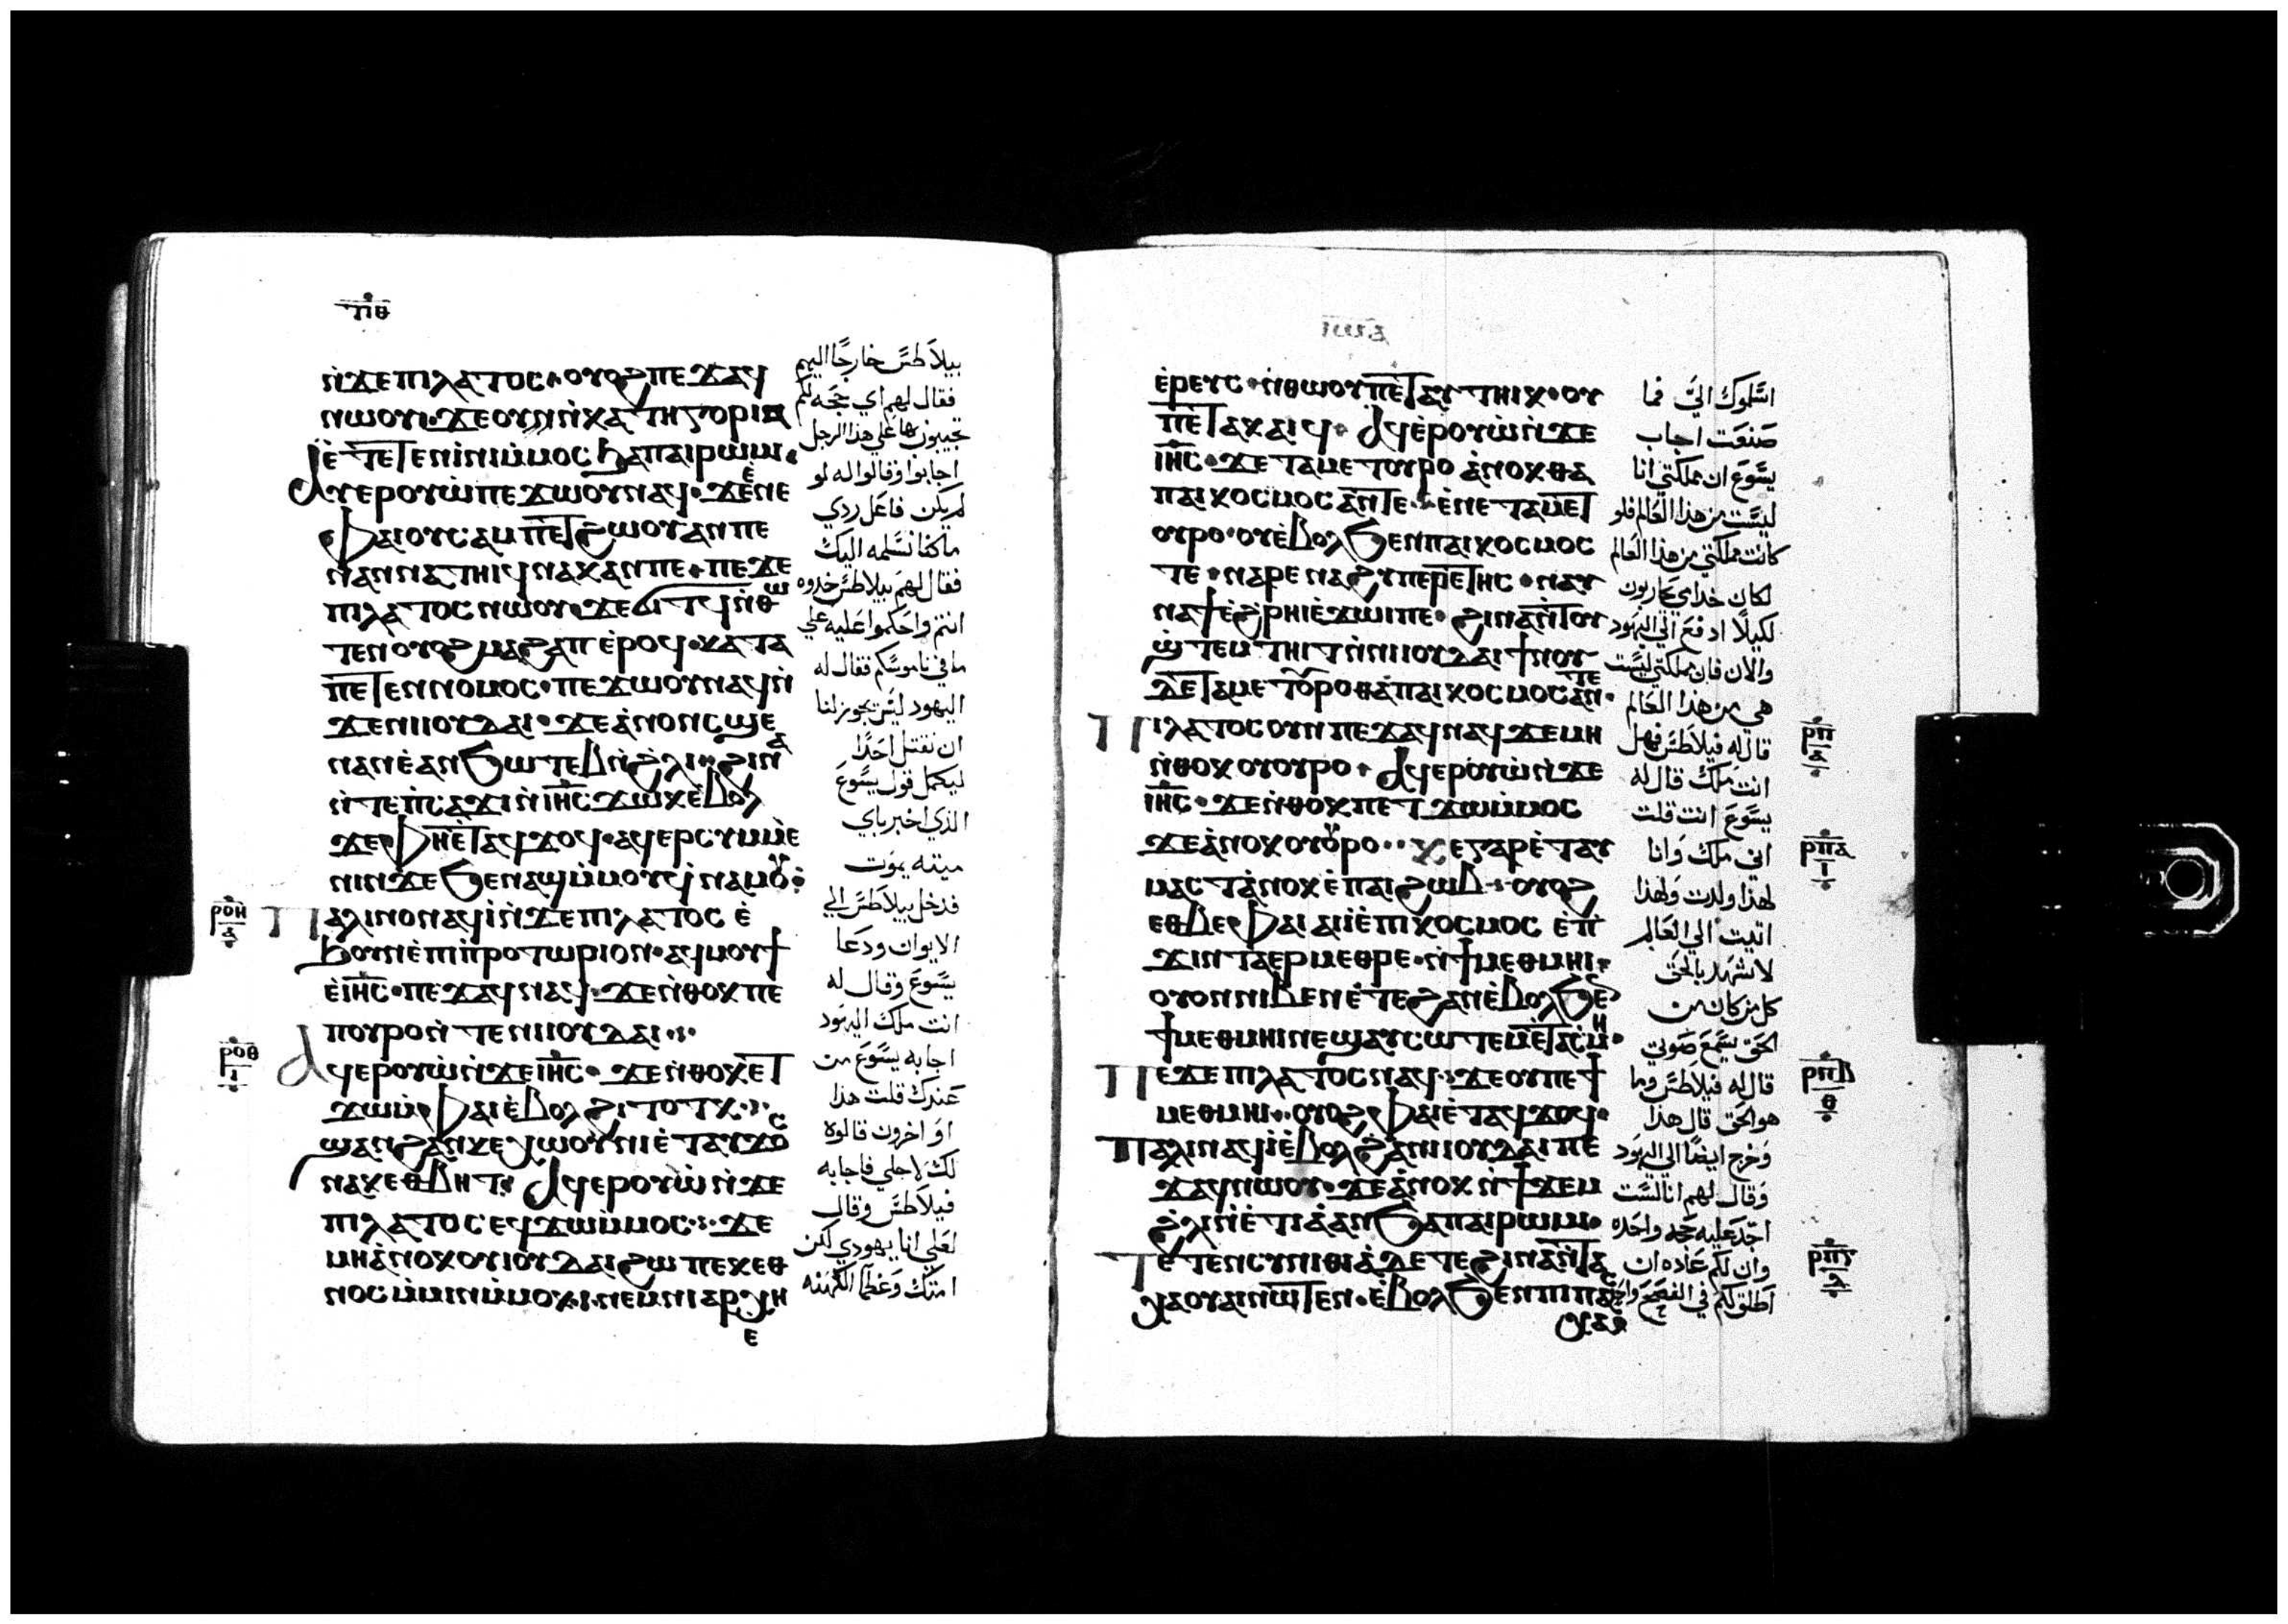 ⲧⲓⲑ
ⲛ̀ϫⲉⲡⲓⲗⲁⲧⲟⲥ·ⲟⲩⲟϩⲡⲉϫⲁϥ
ⲛⲱⲟⲩ·ϫⲉⲟⲩⲛ̀ⲕⲁⲧⲏⲅⲟⲣⲓⲁ
ⲉ̀ⲧⲉⲧⲉⲛⲓ̀ⲛⲓⲙ̀ⲙⲟⲥϧⲁⲡⲁⲓⲣⲱⲙ·
ⲁⲩⲉⲣⲟⲩⲱ̀ⲡⲉϫⲱⲟⲩⲛⲁϥ·ϫⲉⲉ̀ⲛⲉ
ⲫⲁⲓⲟⲩⲥⲁⲙⲡⲉⲧϩⲱⲟⲩⲁⲛⲡⲉ
ⲛⲁⲛⲛⲁⲧⲏⲓϥⲛⲁⲕⲁⲛⲡⲉ·ⲡⲉϫⲉ
ⲡⲓⲗⲁⲧⲟⲥⲛⲱⲟⲩ·ϫⲉϭⲓⲧϥⲛ̀ⲑⲱ
ⲧⲉⲛⲟⲩⲟϩⲙⲁϩⲁⲡⲉ̀ⲣⲟϥ·ⲕⲁⲧⲁ
ⲡⲉⲧⲉⲛⲛⲟⲙⲟⲥ·ⲡⲉϫⲱⲟⲩⲛⲁϥⲛ̀
ϫⲉⲛⲓⲓⲟⲩⲇⲁⲓ·ϫⲉⲁ̀ⲛⲟⲛⲥϣⲉ
ⲛⲁⲛⲉ̀ⲁⲛϧⲱⲧⲉⲃⲛ̀ϩ̀ⲗⲓ·ϩⲓⲛⲁ
ⲛ̀ⲧⲉⲡ̀ⲥⲁϫⲓⲛ̀ⲓⲏⲥϫⲱⲕⲉ̀ⲃⲟⲗ
ϫⲉⲫⲏⲉ̀ⲧⲁϥϫⲟϥ·ⲁϥⲉⲣⲥⲩⲙⲙⲉ̀
ⲛⲓⲛϫⲉϧⲉⲛⲁϣⲙ̀ⲙⲟⲩϥⲛⲁⲙⲟⲩ:
ⲣⲟⲏ
ⲁ
ⲡⲁⲗⲓⲛⲟⲛⲁϥⲓ̀ⲛ̀ϫⲉⲡⲓⲗⲁⲧⲟⲥⲉ̀
ϧⲟⲩⲛⲉ̀ⲡⲓⲡⲣⲟⲧⲱⲣⲓⲟⲛ·ⲁϥⲙⲟⲩϯ
ⲉ̀ⲓⲏⲥ·ⲡⲉϫⲁϥⲛⲁϥ·ϫⲉⲛ̀ⲑⲟⲕⲡⲉ
ⲡⲟⲩⲣⲟⲛ̀ⲧⲉⲛⲓⲓⲟⲩⲇⲁⲓ·:·
ⲣⲟⲑ
ⲁϥⲉⲣⲟⲩⲱ̀ⲛ̀ϫⲉⲓⲏⲥ·ϫⲉⲛ̀ⲑⲟⲕⲉⲧ
ϫⲱⲙ̀ⲫⲁⲓⲉ̀ⲃⲟⲗϩⲓⲧⲟⲧⲕ·:·
ϣⲁⲛϩⲁⲛⲕⲉⲭⲱⲟⲩⲛⲓⲉ̀ⲧⲁⲩϫⲟⲥ
ⲛⲁⲕⲉⲑⲃⲏⲧ·ⲁϥⲉⲣⲟⲩⲱ̀ⲛ̀ϫⲉ
ⲡⲓⲗⲁⲧⲟⲥⲉϥϫⲱⲙ̀ⲙⲟⲥ·:·ϫⲉ
ⲙⲏⲁ̀ⲛⲟⲕⲟⲩⲓⲟⲩⲇⲁⲓϩⲱⲡⲉⲕⲉⲑ
ⲛⲟⲥⲙ̀ⲙⲓⲛⲙ̀ⲙⲟⲕ·ⲛⲉⲙⲛⲓⲁⲣⲭⲏ
ⲉ
بيلاطس خارجا اليهم
فقال لهم اي حجه لكم
تجيبون بها علي هذا الرجل
اجابوا وقالوا له لو
لم يكن فاعل ردي
ما كنا نسلمه اليك
فقال لهم بيلاطس خدوه
انتم واحكموا عليه علي
ما في ناموسكم فقال له
اليهود ليس يجوز لنا
ان نقتل احدا
ليكمل قول يسوع
الذي اخبر باي
ميته يموت
فدخل بيلاطس الي
الايوان ودعا
يسوع وقال له
انت ملك اليهود
اجابه يسوع من
عندك قلت هذا
او اخرون قالوه
لك لاجلي فاجابه
فيلاطس وقال
لعلي انا يهودي لكن
امتك وعظما الكهنه
ⲉ̀ⲣⲉⲩⲥ·ⲛ̀ⲑⲱⲟⲩⲡⲉ̀ⲧⲁⲩⲧⲏⲓⲕ·ⲟⲩ
ⲡⲉ̀ⲧⲁⲕⲁⲓϥ·ⲁϥⲉ̀ⲣⲟⲩⲱ̀ⲛ̀ϫⲉ
ⲓⲏⲥ·ϫⲉⲧⲁⲙⲉⲧⲟⲩⲣⲟⲁ̀ⲛⲟⲕⲑⲁ
ⲡⲁⲓⲕⲟⲥⲙⲟⲥⲁⲛⲧⲉ·ⲉ̀ⲛⲉⲧⲁⲙⲉⲧ
ⲟⲩⲣⲟ·ⲟⲩⲉ̀ⲃⲟⲗϧⲉⲛⲡⲁⲓⲕⲟⲥⲙⲟⲥ
ⲧⲉ·ⲛⲁⲣⲉⲛⲁϩⲩⲡⲉⲣⲉⲧⲏⲥ·ⲛⲁⲩ
ⲛⲁϯⲉ̀ϩⲣⲏⲓⲉ̀ϫⲱⲓⲡⲉ·ϩⲓⲛⲁⲛ̀ⲧⲟⲩ
ϣ̀ⲧⲉⲙⲧⲏⲓⲧⲛ̀ⲛⲓⲓⲟⲩⲇⲁⲓϯⲛⲟⲩ
ⲇⲉⲧⲁⲙⲉⲧⲟⲩⲣⲟⲑⲁⲡⲁⲓⲕⲟⲥⲙⲟⲥⲁⲛⲧⲉ·
ⲡⲓⲗⲁⲧⲟⲥⲟⲩⲛⲡⲉϫⲁϥⲛⲁϥϫⲉⲙⲏ
ⲛ̀ⲑⲟⲕⲟⲩⲟⲩⲣⲟ·ⲁϥⲉⲣⲟⲩⲱ̀ⲛ̀ϫⲉ
ⲓⲏⲥ·ϫⲉⲛ̀ⲑⲟⲕⲡⲉⲧϫⲱⲙ̀ⲙⲟⲥ
ϫⲉⲁ̀ⲛⲟⲕⲟⲩⲟⲩⲣⲟ··ϫⲉⲅⲁⲣⲉ̀ⲧⲁⲩ
ⲙⲁⲥⲧⲁ̀ⲛⲟⲕⲉ̀ⲡⲁⲓϩⲱⲃ·ⲟⲩⲟϩ
ⲉⲑⲃⲉⲫⲁⲓⲁⲓⲓ̀ⲉ̀ⲡⲓⲕⲟⲥⲙⲟⲥⲉ̀ⲡ
ϫⲓⲛⲧⲁⲉⲣⲙⲉⲑⲣⲉ·ⲛ̀ϯⲙⲉⲑⲙⲏⲓ·
ⲟⲩⲟⲛⲛⲓⲃⲉⲛⲉ̀ⲧⲉϩⲁⲛⲉ̀ⲃⲟⲗϧⲉⲛ
ϯⲙⲉⲑⲙⲏⲓⲛⲉϣⲁⲩⲥⲱⲧⲉⲙⲉⲧⲁⲥⲙⲏ·
ⲡⲉϫⲉⲡⲓⲗⲁⲧⲟⲥⲛⲁϥ·ϫⲉⲟⲩⲡⲉϯ
ⲙⲉⲑⲙⲏⲓ··ⲟⲩⲟϩⲫⲁⲓⲉ̀ⲧⲁϥϫⲟϥ·
ⲡⲁⲗⲓⲛⲁϥⲓ̀ⲉ̀ⲃⲟⲗϩⲁⲛⲓⲓⲟⲩⲇⲁⲓⲡⲉ
ϫⲁϥⲛⲱⲟⲩ·ϫⲉⲁ̀ⲛⲟⲕⲛ̀ϯϫⲉⲙ
ϩ̀ⲗⲓⲛ̀ⲉ̀ⲧⲓⲁ̀ⲁⲛϧⲁⲡⲁⲓⲣⲱⲙ·
ⲧⲉⲧⲉⲛⲥⲩⲛⲓⲑⲓⲁ̀ⲇⲉⲧⲉϩⲓⲛⲁⲛ̀ⲧⲁ
ⲭⲁⲟⲩⲁⲓⲛⲱⲧⲉⲛ·ⲉ̀ⲃⲟⲗϧⲉⲛⲡⲓⲡⲁⲥ
ⲭⲁ
اسلموك الي فما
صنعت اجاب
يسوع ان مملكتي انا
ليست من هذا العالم فلو
كانت مملكتي من هذا العالم
لكان خدامي يحاربون
لكيلا ادفع الي اليهود
والان فان مملكتي ليست
هي من هذا العالم
قال له فيلاطس فهل
انت ملك قال له
يسوع انت قلت
اني ملك وانا
لهذا ولدت ولهذا
اتيت الي العالم
لاشهد بالحق
كل من كان من
الحق يسمع صوتي
قال له فيلاطس وما
هو الحق قال هذا
وخرج ايضا الي اليهود
وقال لهم انا لست
اجد عليه حجه واحده
وان لكم عاده ان
اطلق لكم في الفصح واحد
ⲣⲡ
ⲁ
ⲣⲡⲁ
ⲓ
ⲣⲡⲃ
ⲑ
ⲣⲡⲅ